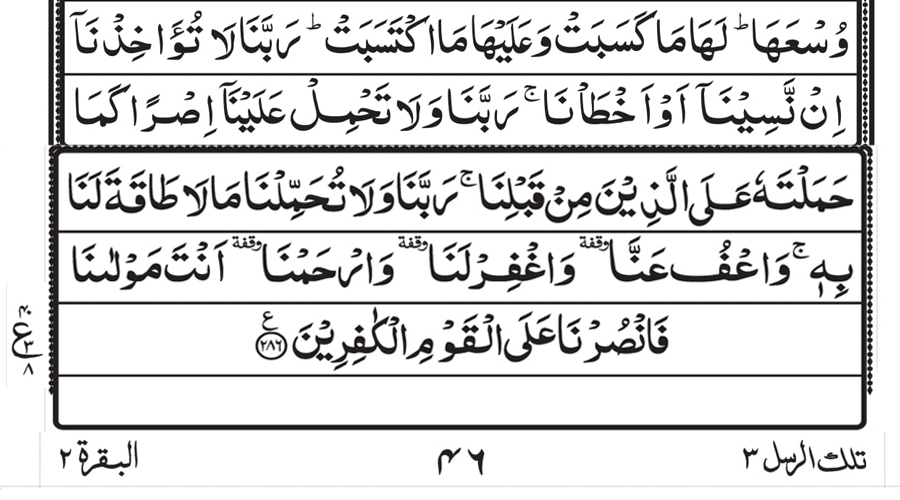 وُسْعَهَا ؕ لَهَا مَا كَسَبَتْ وَعَلَيْهَا مَا اكْتَسَبَتْ ؕ رَبَّنَا لَا تُؤَاخِذْنَاۤ
اِنْ نَّسِيْنَاۤ اَوْ اَخْطَاْنَا ۚ رَبَّنَا وَلَا تَحْمِلْ عَلَيْنَاۤ اِصْرًا كَمَا
حَمَلْتَهٗ عَلَى الَّذِيْنَ مِنْ قَبْلِنَا ۚ رَبَّنَا وَلَا تُحَمِّلْنَا مَا لَا طَاقَةَ لَنَا
بِهٖ ۚ وَاعْفُ عَنَّا وقفة وَاغْفِرْ لَنَا وقفة وَارْحَمْنَا وقفة اَنْتَ مَوْلٰىنَا
فَانْصُرْنَا عَلَى الْقَوْمِ الْكٰفِرِيْنَ ع ۲۸۶
ع ۴۰ ۳ ۸
تلك الرسل ۳ ۴۶ البقرة ۲